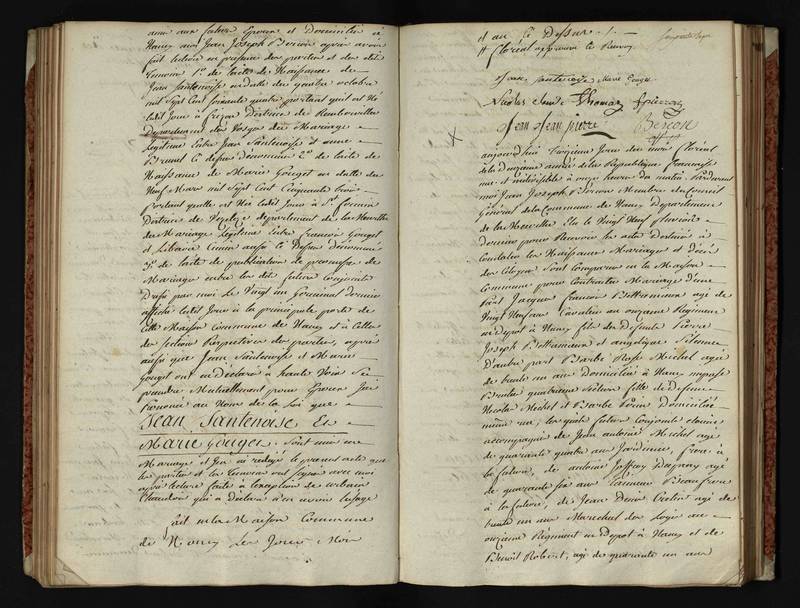 amie aux futurs Epoux et domiciliés à
Nancy moi Jean Joseph Berson après avoir
fait lecture en presence des parties et des dits
Temoins 1.º de l'acte de Naissance de
Jean Santenoise en datte du quatre octobre
mil Sept Cent Soixante quatre portant qu'il est Né
ledit jour à district de Rambervillers
Departement des Vosges du Mariage
Legitime Entre Jean Santenoise et anne
Brunel Ci dessus dénommés 2.º de l'acte de
Naissance de Marie Gouget en datte du
Neuf Mars mil Sept Cent Cinquante trois
portant quelle est Née ledit jour à S.t Firmin
District de Vezelize departement de la Meurthe
du Mariage Legitime Entre francois Gouget
et Libaire aussi Ci Dessus dénommés
3.º de l'acte de publication de promesse de
Mariage entre les dits futurs conjoints
Dressé par moi le Vingt un Germinal dernier
affiché ledit jour à la principale porte de
Cette Maison Commune de Nancy et à Celles
des Sections Respectives des parties, après
aussi que Jean Santenoise et Marie
Gouget ont eu Déclaré à haute Voix Se
prendre Mutuellement pour Epoux J'ai
Prononcé au Nom de la Loi que
Jean Santenoise Et
Marie Gouget Sont unis en
Mariage et j'ai rédigé le present acte que
les parties et les temoins ont signé avec moi
après lecture faite à l'exception de urbain
Chaudon qui a déclaré n'en avoir l'usage
fait en la Maison Commune
de Nancy Les Jour Mois
et an Ci Dessus
Floréal approuvé le Renvoy
Jean Santenoise Marie Gouget
Nicolas Thomas
Jean Jean pierre Berson
aujourd'hui Treizieme Jour du mois Floréal
de la Douzieme année de la Republique francaise
une et indivisible à onze heures du matin Pardevant
moi Jean Joseph Berson Membre du Conseil
Général de la Commune de Nancy Departement
de la Meurthe Elu le Vingt Neuf pluviôse
dernier pour Recevoir les actes Destinés à
Constater les Naissances Mariages et Décès
des Citoyens Sont comparus en la Maison
Commune pour Contracter Mariage d'une
part Jacques francois Bottemanne agé de
Vingt Neuf ans Cavalier au onzieme Régiment
en Depot à Nancy fils des Défunts Pierre
Joseph Bottemanne et angelique Etienne
D'autre part Barbe Rose Michel agée
de trente un ans Domiciliée à Nancy
quatrieme Section fille de Defunt
Nicolas Michel et Barbe domiciliée
même rue, les quels futurs Conjoints étoient
accompagnés de Jean antoine Michel agé
de quarante quatre ans Jardinier, frere à
la future, de antoine Joffroy Dagnay agé
de quarante six ans Tanneur Beaufrere
à la future, de Jean Denis agé de
trente un ans Marechal des Logis au
onzieme Régiment en Depot à Nancy et de
Benoit Robert, agé de quarante un ans